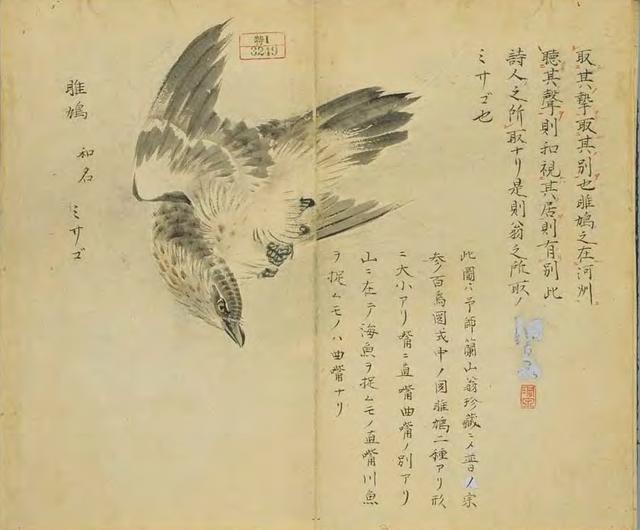 取其摯取其別也雎鳩之在河州
聴其聲則和視其居則有別此
詩人之所取ナリ是則翁之所取ノ
ミサゴ也
此圖ハ予師蘭山翁珍藏ニメ ノ宗
ノ百鳥圖 中ノ圖雎鳩二種アリ形
ニ大小アリ嘴ニ直嘴曲嘴ノ別アリ
山ニ在テ海魚ヲ捉ムモノ直嘴川魚
ヲ捉ムモノハ曲嘴ナリ
特1
3249
雎鳩 和名 ミサゴ